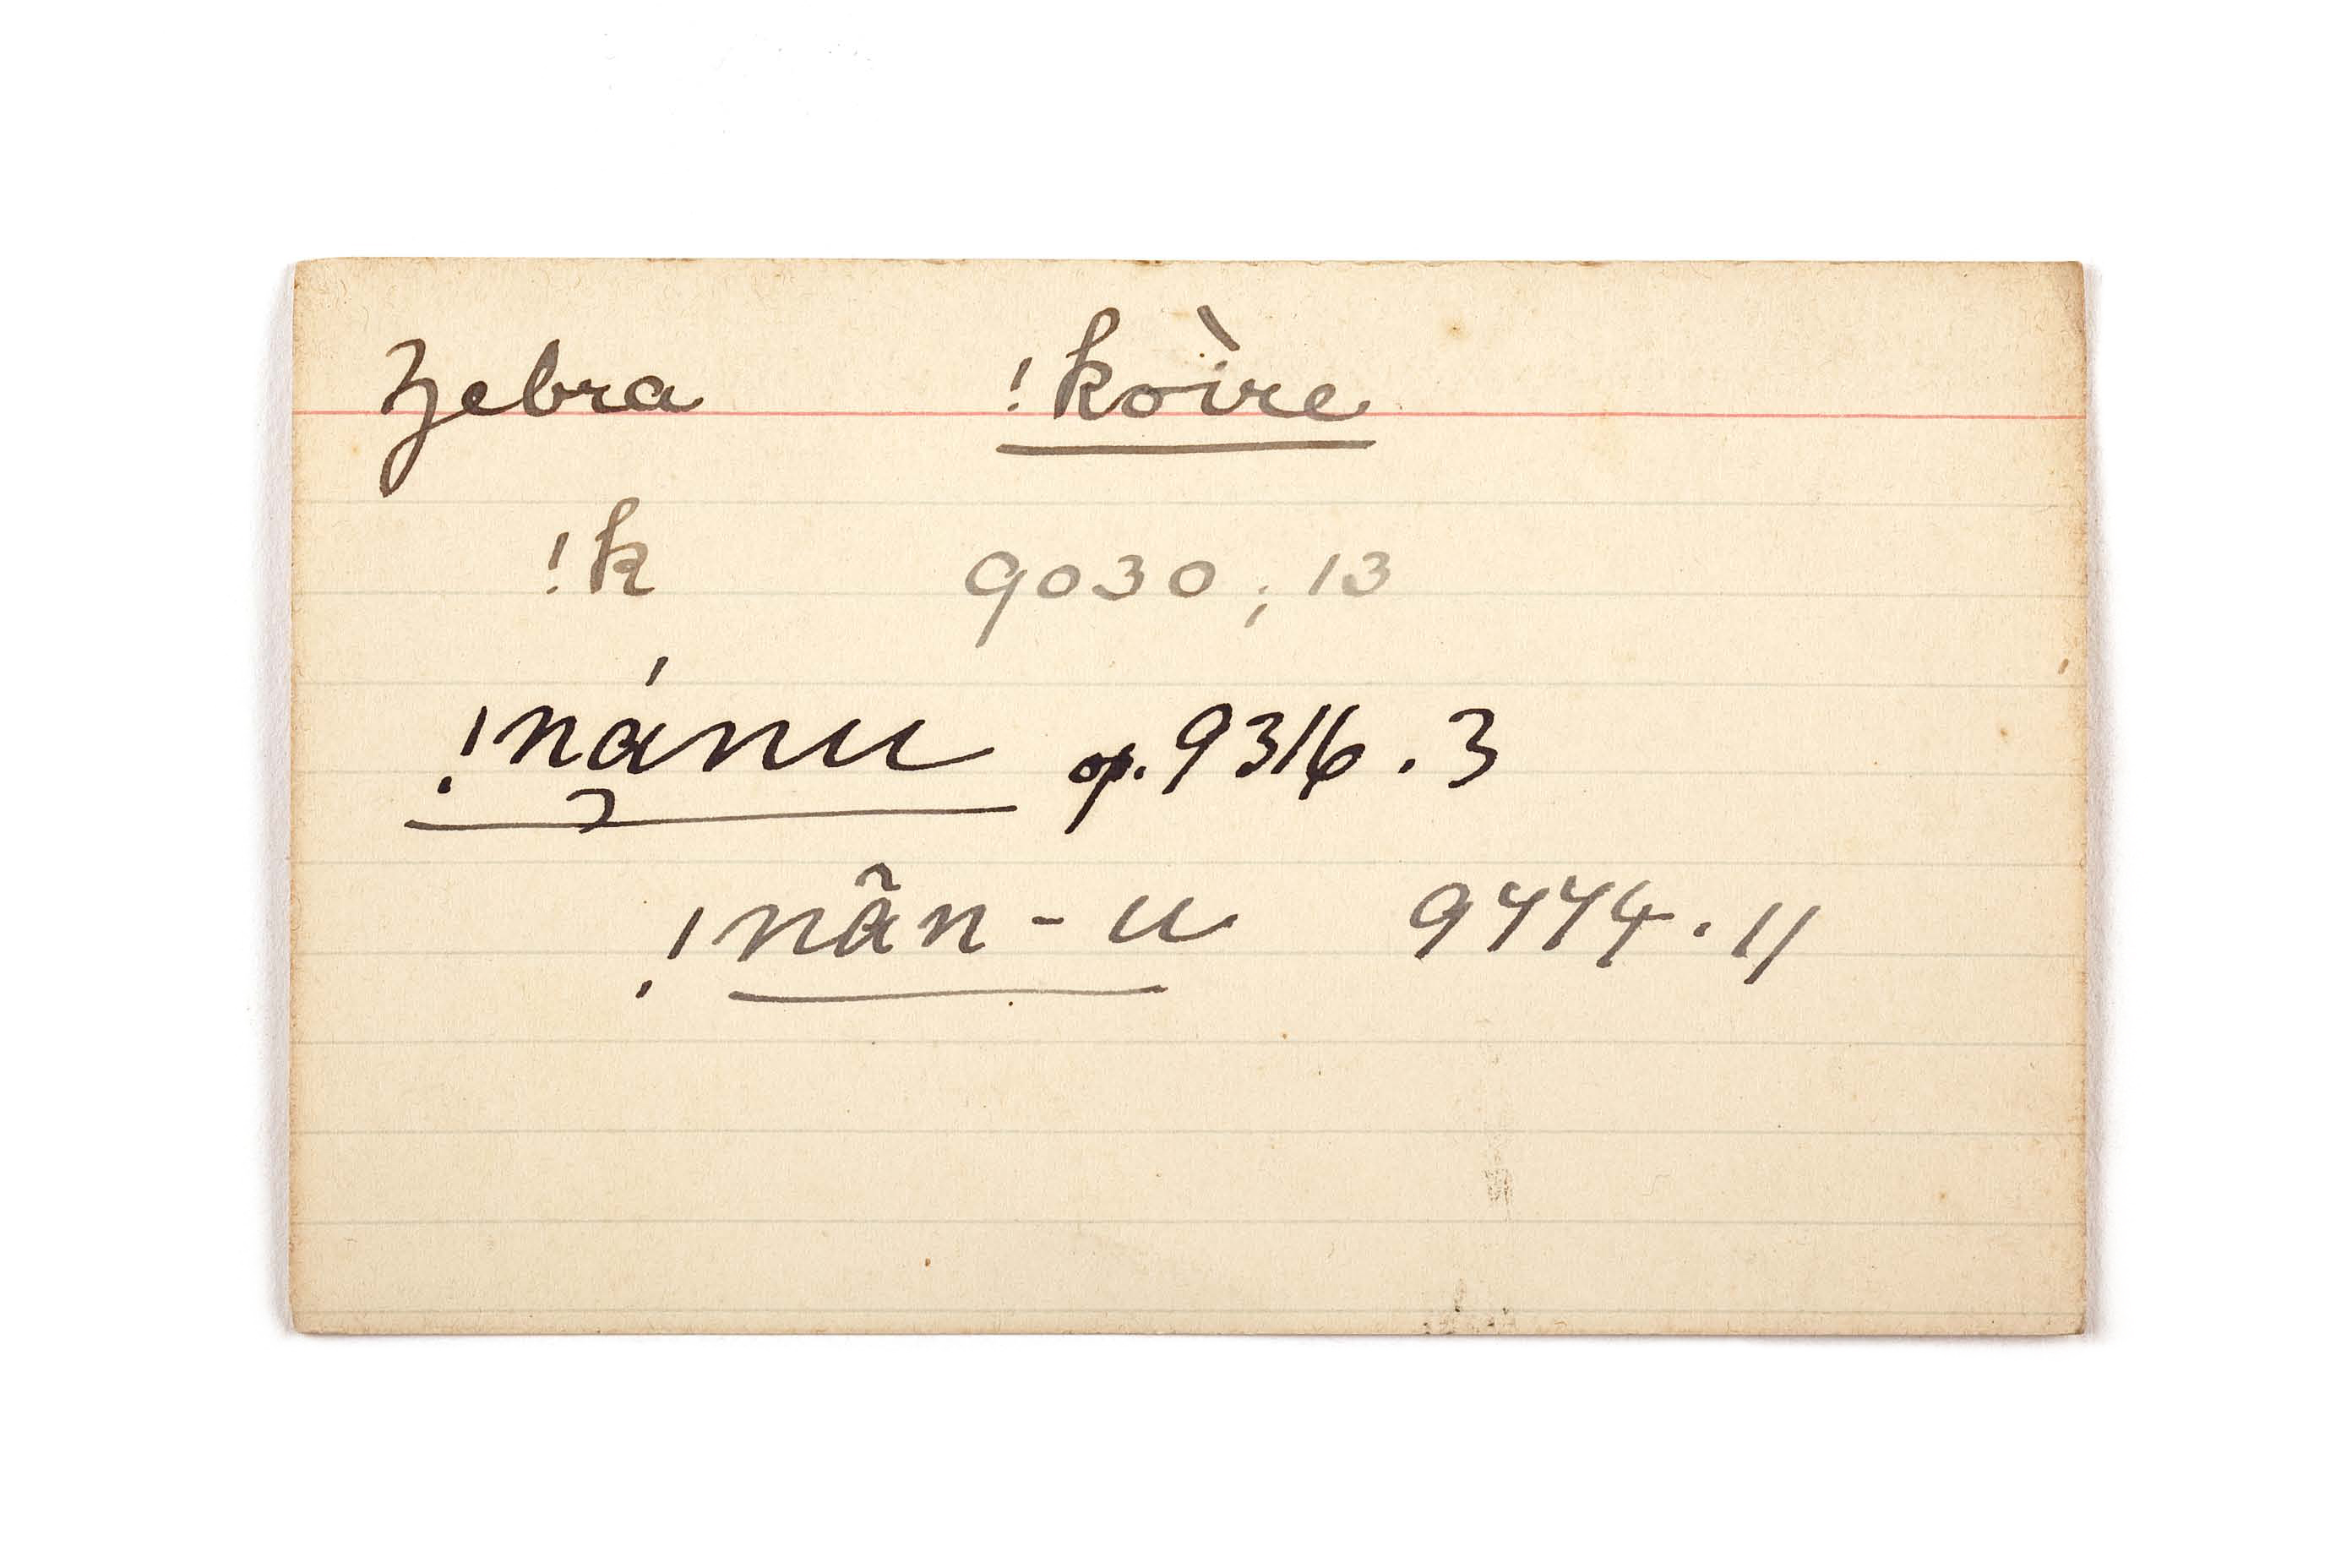 Zebra !kòïre
!k 9030; 13
!nánu op. 9316. 3
!nãn-u 9474. 11